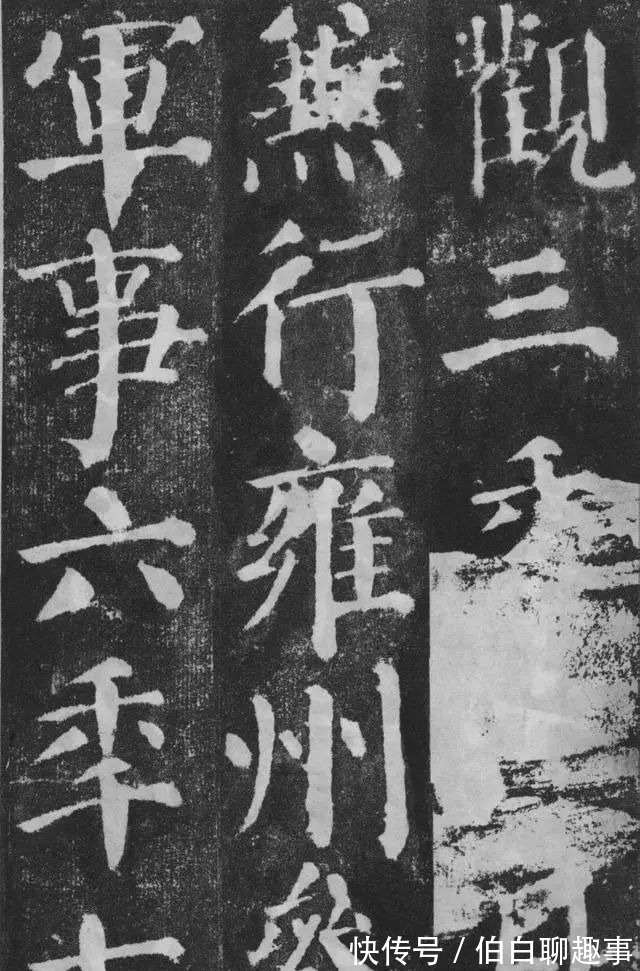 觀三年
兼行雍州參
軍事六年
快传号 / 伯白聊趣事